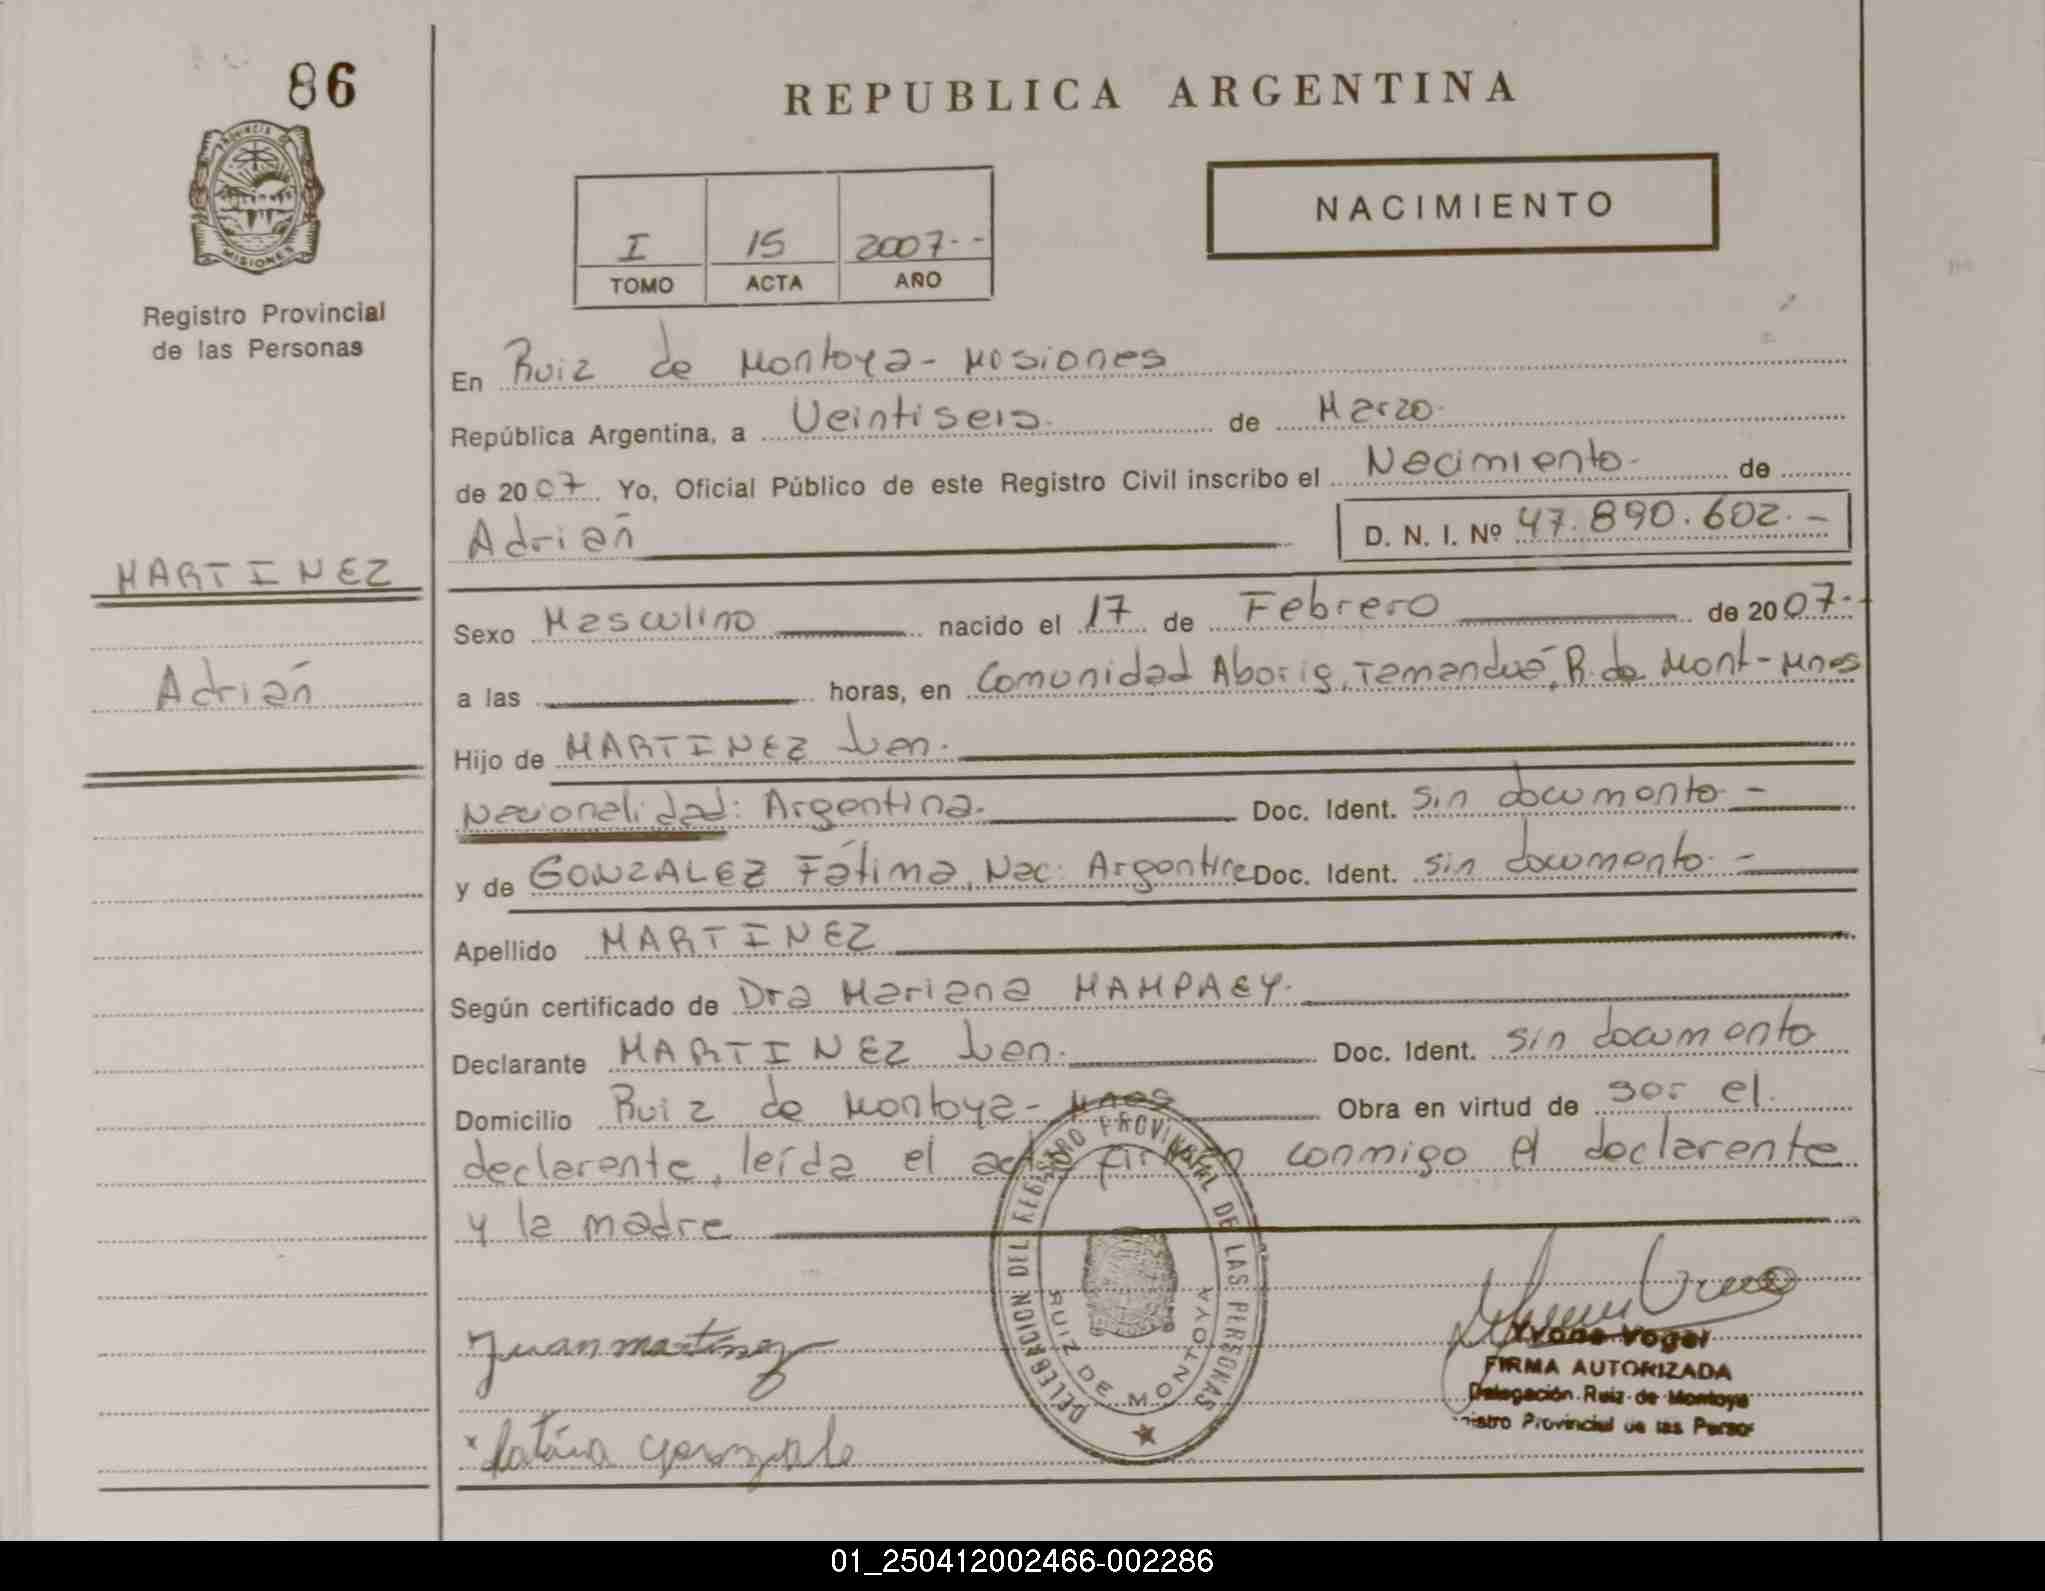 86
REPUBLICA ARGENTINA
PROVINCIA DE
MISIONES
Registro Provincial
de las Personas
I 15 2007--
TOMO ACTA AÑO
NACIMIENTO
En Ruiz de Montoya - Misiones
República Argentina, a Veintiseis. de Marzo.
de 2007 Yo, Oficial Público de este Registro Civil inscribo el Nacimiento - de
Adrián
D. N. I. Nº 47.890.602.-
MARTINEZ
Adrián
Sexo Masculino nacido el 17 de Febrero de 2007.-
a las horas, en Comunidad Aborig, Tamanduá, R. de Mont-Mnes
Hijo de MARTINEZ Juan.
Nacionalidad: Argentina. Doc. Ident. Sin documento -
y de GONZALEZ Fátima, Nac: Argentina Doc. Ident. sin documento. -
Apellido MARTINEZ
Según certificado de Dra Mariana MAMPAEY.
Declarante MARTINEZ Juan. Doc. Ident. sin documento
Domicilio Ruiz de Montoya - Mnes Obra en virtud de ser el
declarante, leída el acta firman conmigo el declarante
y la madre
DELEGACION DEL REGISTRO PROVINCIAL DE LAS PERSONAS
RUIZ DE MONTOYA
Juan martinez
Yvone Vogel
FIRMA AUTORIZADA
Delegación Ruiz de Montoya
istro Provincial de las Person
x fatima gonzale
01_250412002466-002286